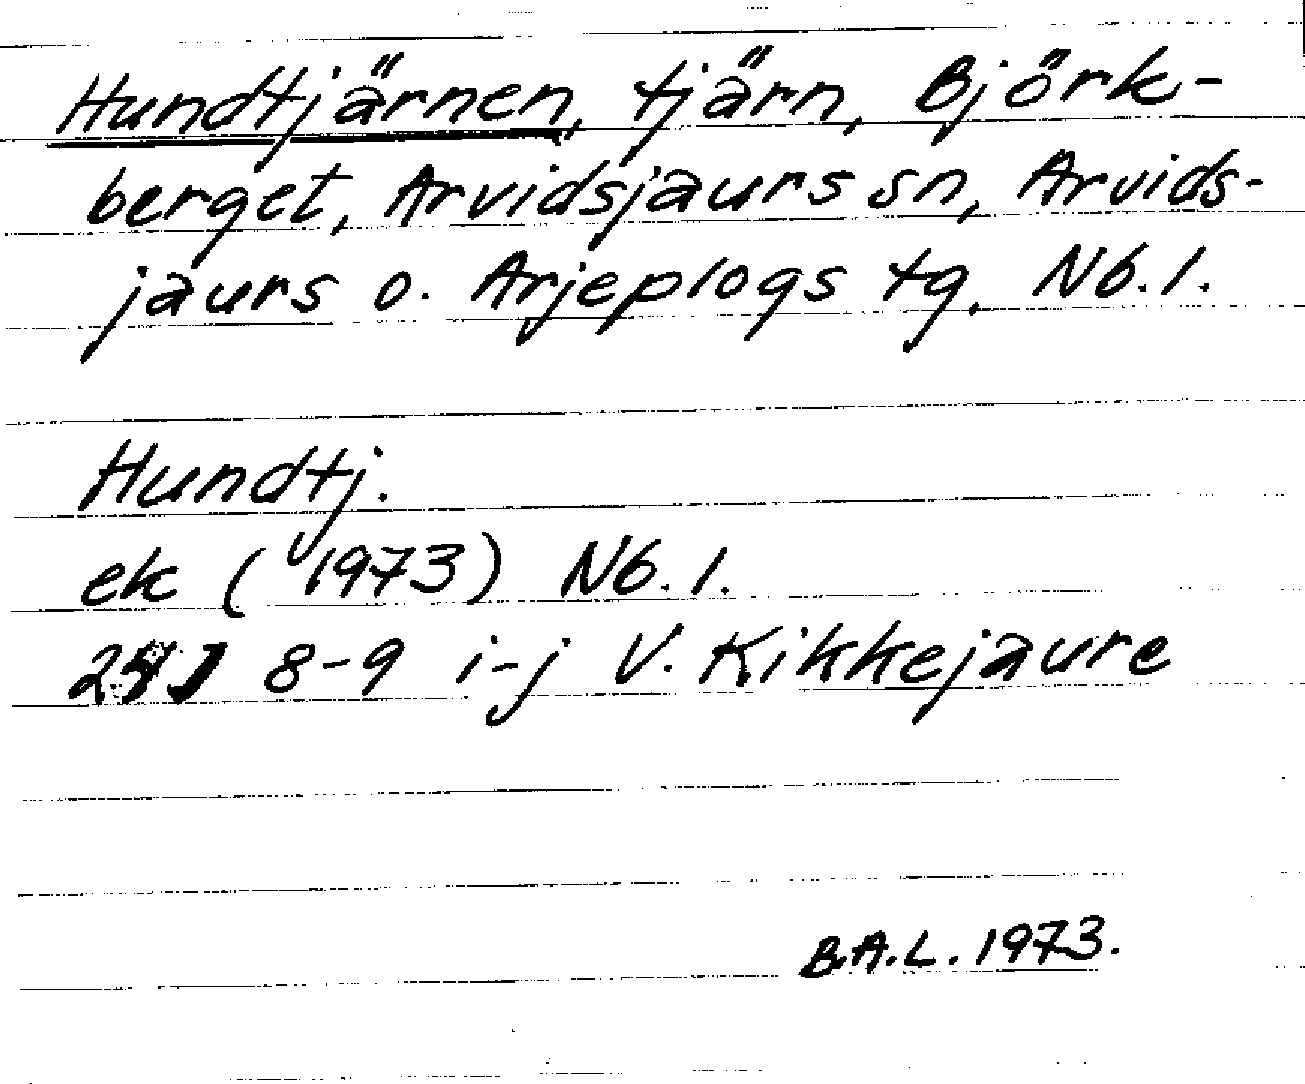 Hundtjärnen, tjärn, Björk-
berget, Arvidsjaurs sn, Arvids-
jaurs o. Arjeplogs tg. Nb. l.
Hundtj.
ek (1973) Nb. l.
8-9 i-j V. Kikkejaure
B.A.L. 1973.